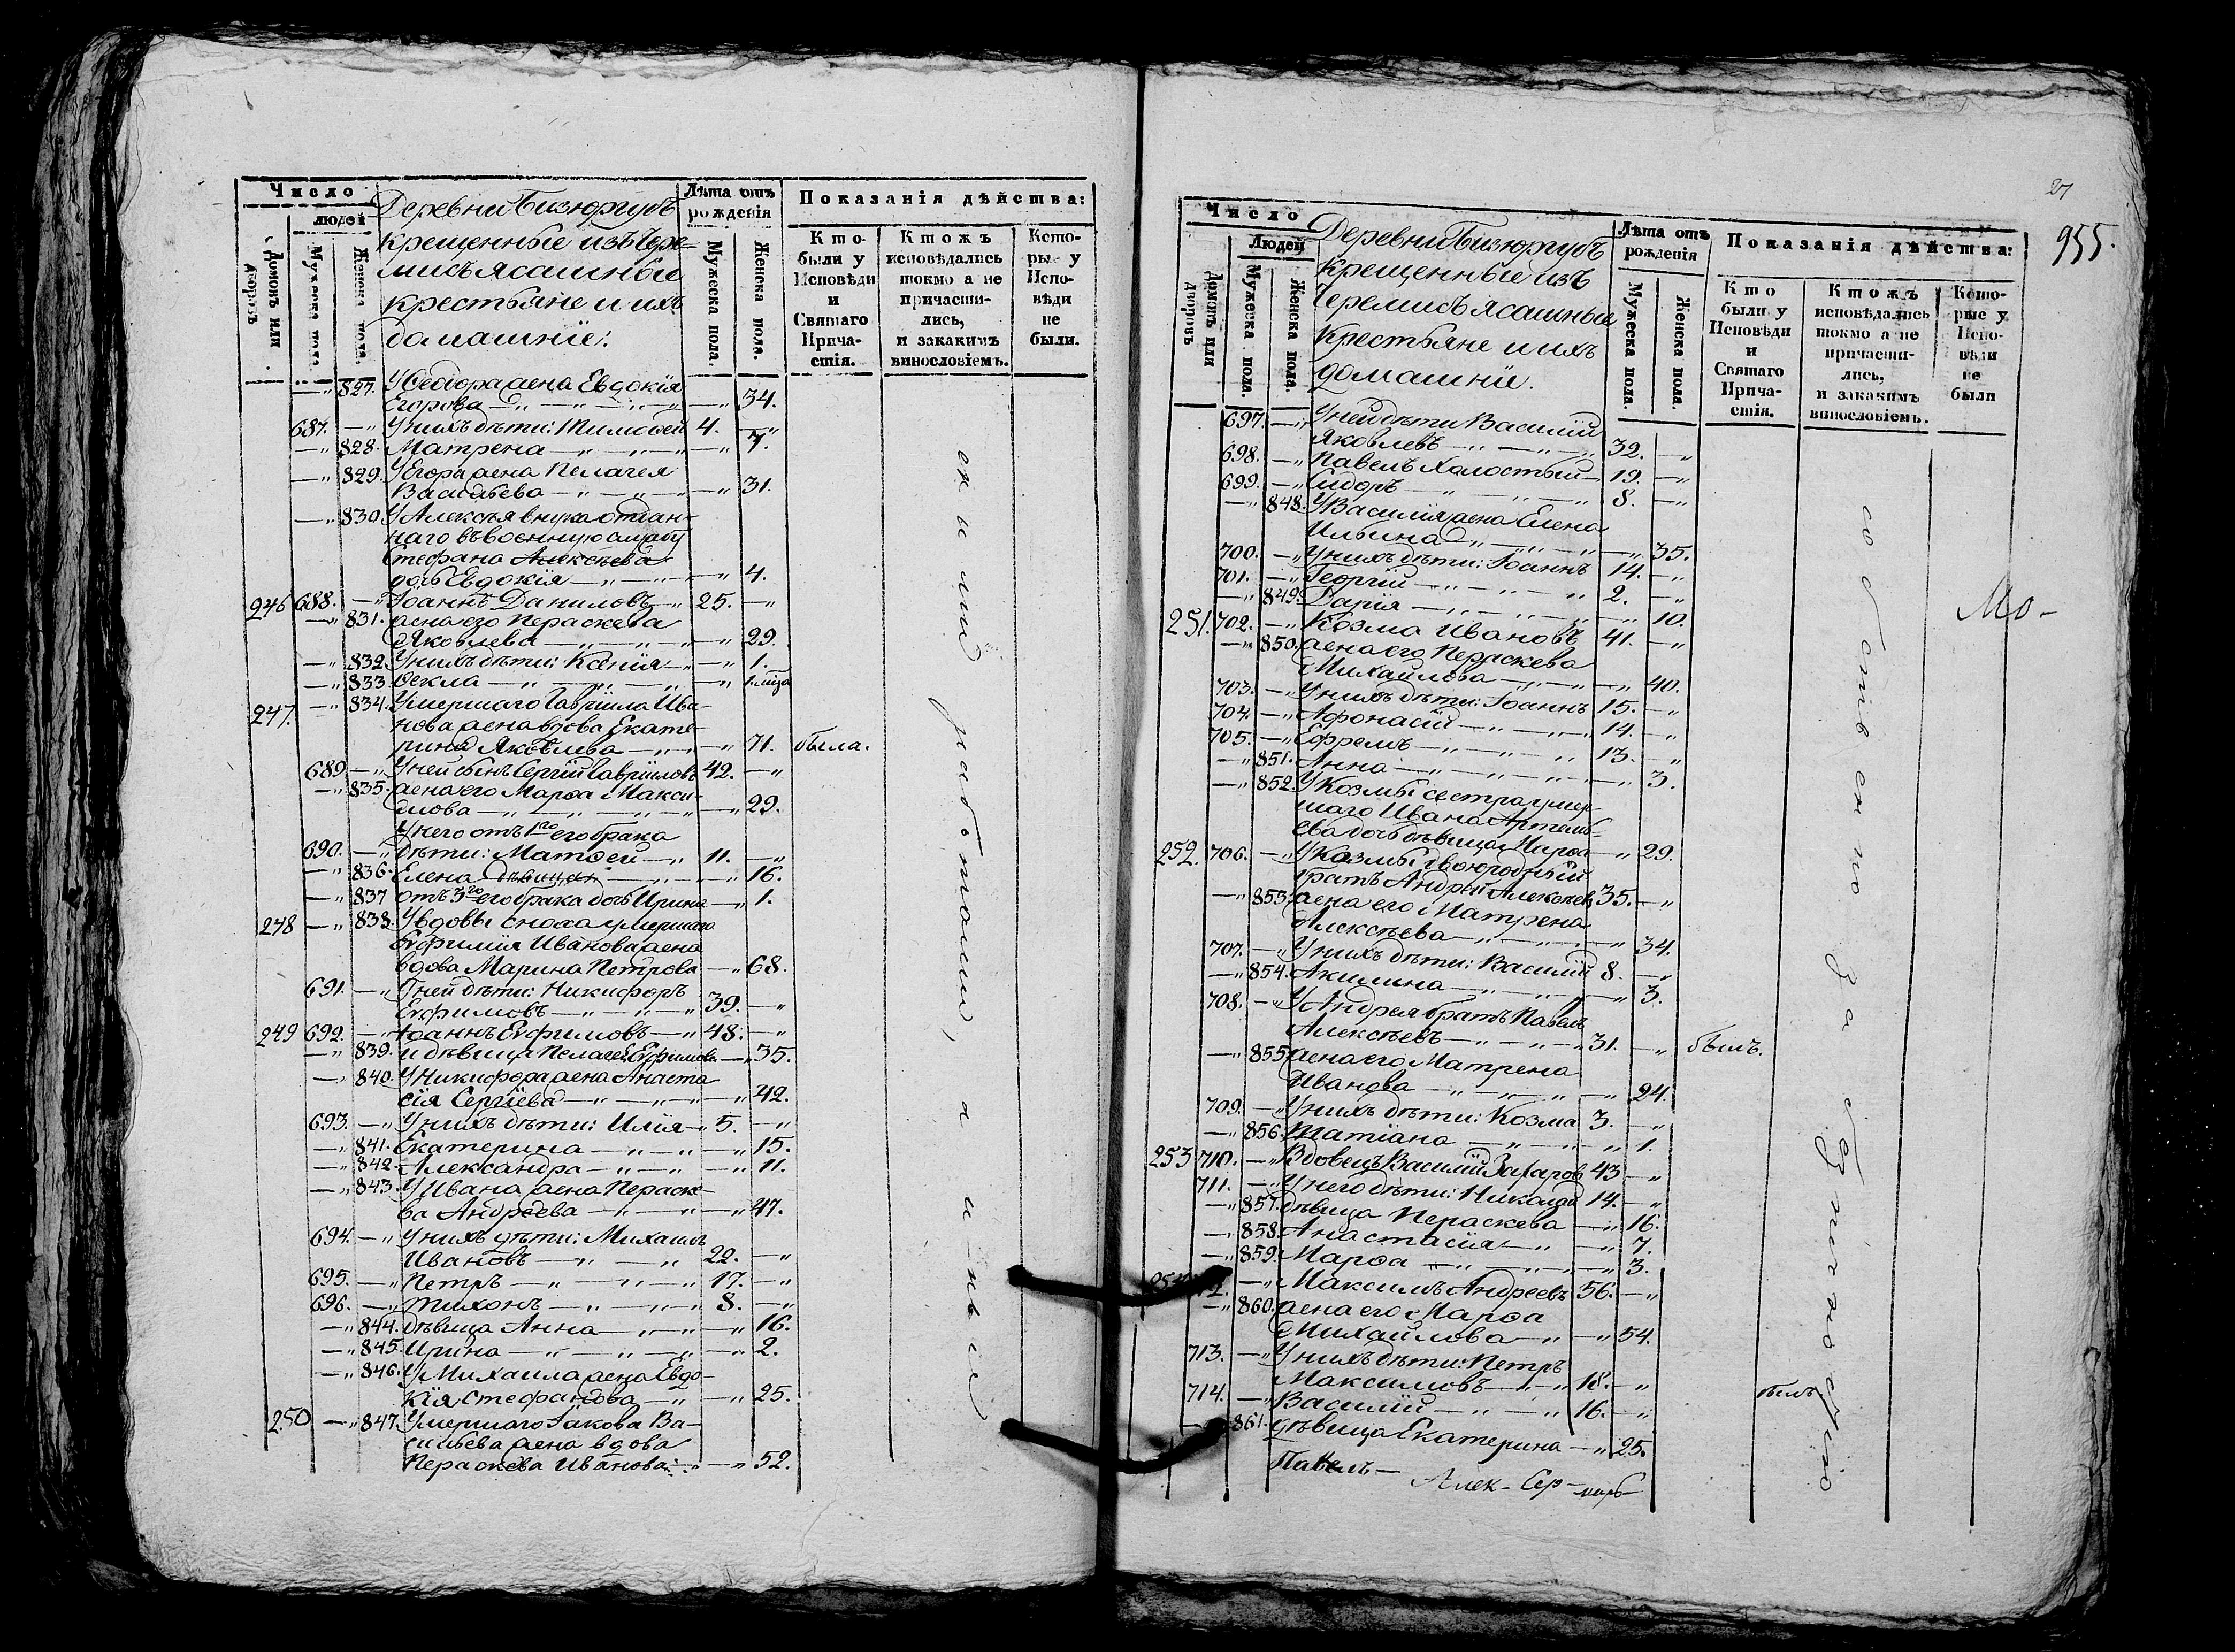 Число
людей
Домовъ или дворовъ
Мужеска пола.
Женска пола.
Деревни Бизюргубъ
крещенные изъ Чере-
мисъ ясашные
крестьяне и ихъ
домашніе:
Лѣта отъ рожденія
Мужеска пола.
Женска пола.
Показанія дѣйства:
Кто были у Исповѣди и Святаго Прича-стія.
Ктожъ исповѣдались токмо а не причасти-лись, и закакимъ винословіемъ.
Кото-рые у Испо-вѣди не были.
—„ 827. У Ѳедора жена Евдокія
Егорова —„ —„ 34.
687. —„ У нихъ дѣти: Тимоѳей 4. —„
—„ 828. Матрена —„ —„ 7.
—„ 829. У Егора жена Пелагея
Васильева —„ —„ 31.
—„ 830. У Алексѣя внука отдан-
наго въ военную службу
Стефана Алексѣева
дочь Евдокія —„ —„ 4.
246 688. —„ Іоаннъ Даниловъ —„ 25. —„
—„ 831. жена его Пераскева
Яковлева —„ —„ 29.
—„ 832. У нихъ дѣти: Ксенія —„ —„ 1.
—„ 833. Ѳекла —„ —„
247. —„ 834. Умершаго Гавріила Ива-
нова жена вдова Екате-
рина Яковлева —„ —„ 71. была.
689 —„ У ней сынъ Сергій Гавріиловъ 42. —„
—„ 835. жена его Марѳа Макси-
мова —„ —„ 29.
У него отъ 1го его брака
690. —„ дѣти: Матѳей —„ 11. —„
—„ 836. Елена дѣвица —„ —„ 16.
—„ 837 отъ 3го его брака дочь Ирина —„ 1.
248 —„ 838. У вдовы сноха умершаго
Евфимія Иванова жена
вдова Марина Петрова —„ 68.
691. —„ У ней дѣти: Никифоръ
Евфимовъ —„ 39. —„
249 692. —„ Іоаннъ Евфимовъ —„ 48. —„
—„ 839. и дѣвица Пелагея Евфимова —„ 35.
—„ 840. У Никифора жена Анаста
сія Сергіева —„ —„ 42.
693. —„ У нихъ дѣти: Илія —„ 5. —„
—„ 841. Екатерина —„ —„ 15.
—„ 842. Александра —„ —„ 11.
—„ 843. У Ивана жена Пераске-
ва Андреева —„ —„ 47.
694. —„ У нихъ дѣти: Михаилъ
Ивановъ —„ 22. —„
695. —„ Петръ —„ 17. —„
696. —„ Тихонъ —„ 8. —„
—„ 844. дѣвица Анна —„ —„ 16.
—„ 845. Ирина —„ —„ 2.
—„ 846. У Михаила жена Евдо-
кія Стефанова —„ —„ 25.
250 —„ 847. Умершаго Іакова Ва-
сильева жена вдова
Пераскева Иванова: —„ 52.
27
955.
Число
Людей
Домовъ или дворовъ
Мужеска пола.
Женска пола.
Деревни Бизюргубъ
крещенные изъ
Черемисъ ясашные
крестьяне и ихъ
домашніе.
Лѣта отъ рожденія
Мужеска пола.
Женска пола.
Показанія дѣйства:
Кто были у Исповѣди и Святаго Прича-стія.
Ктожъ исповѣдались токмо а не причасти-лись, и закакимъ винословіемъ.
Кото-рые у Испо-вѣди не были
697. —„ У ней дѣти Василій
Яковлевъ —„ 32. —„
698. —„ Павелъ холостый — 19. —„
699. —„ Сидоръ —„ 8. —„
—„ 848. У Василія жена Елена
Ильина —„ —„ 35.
700. —„ У нихъ дѣти: Іоаннъ 14. —„
701. —„ Георгій —„ 2. —„
—„ 849. Дарія —„ —„ 10.
251. 702. —„ Козма Ивановъ 41. —„
—„ 850. жена его Пераскева
Михайлова —„ —„ 40.
703. —„ У нихъ дѣти: Іоаннъ 15. —„
704. —„ Афонасій —„ 14. —„
705. —„ Ефремъ —„ 13. —„
—„ 851. Анна —„ —„ 3.
—„ 852. У Козмы сестра умер-
шаго Ивана Артемь-
ева дочь дѣвица Марѳа —„ 29.
252. 706. —„ У Козмы двоюродный
братъ Андрей Алексѣевъ 35. —„
—„ 853. жена его Матрена
Алексѣева —„ —„ 34.
707. —„ У нихъ дѣти: Василій 8. —„
—„ 854. Акилина —„ —„ 3.
708. —„ У Андрея братъ Павелъ
Алексѣевъ —„ 31. —„ былъ.
—„ 855. жена его Матрена
Иванова —„ —„ 24.
709. —„ У нихъ дѣти: Козма 3. —„
—„ 856. Татіана —„ —„ 1.
253 710. —„ Вдовецъ Василій Захаровъ 43 —„
711. —„ У него дѣти: 14. —„
—„ 857. дѣвица Пераскева —„ 16.
—„ 858. Анастасія —„ —„ 7.
—„ 859. Марѳа —„ —„ 3.
—„ Максимъ Андреевъ 56. —„
—„ 860. жена его Марѳа
Михайлова —„ —„ 54.
713. —„ У нихъ дѣти: Петръ
Максимовъ —„ 18. —„
714. —„ Василій —„ 16. —„ былъ
861. дѣвица Екатерина —„ 25.
Павелъ — Алек- Сер-
Мо-